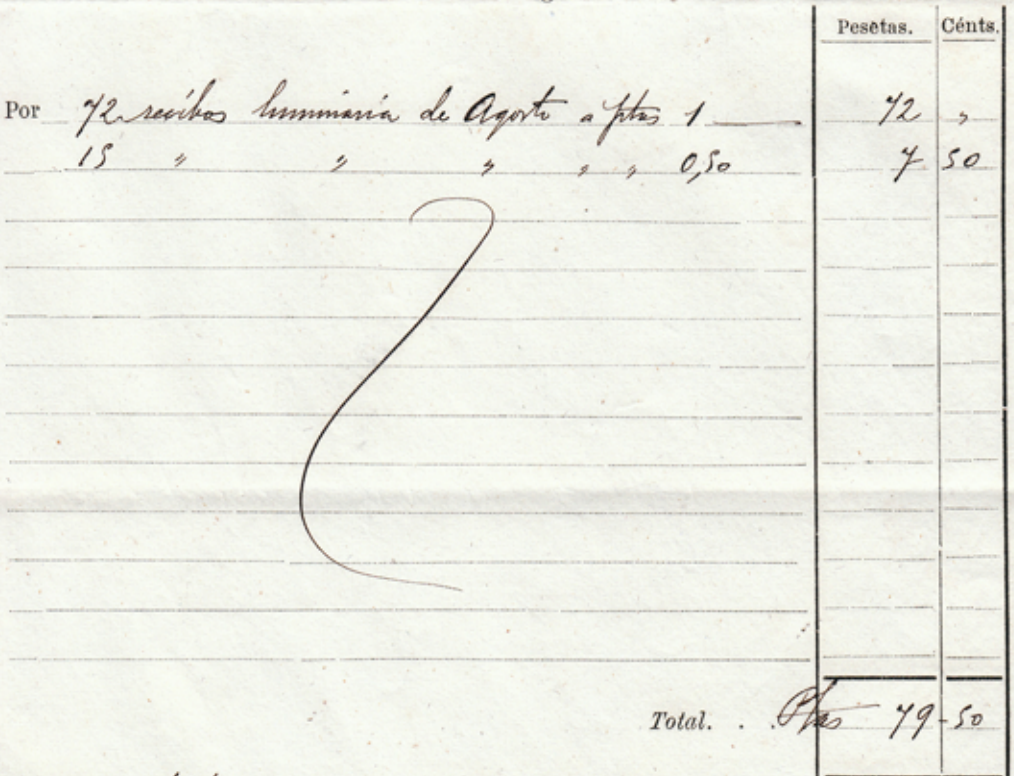 Pesetas. Cénts.
Por 72 recibos luminaria de Agosto a ptas 1 72 "
15 " " " " " 0,50 7 50
Total. . . Ptas 79-50